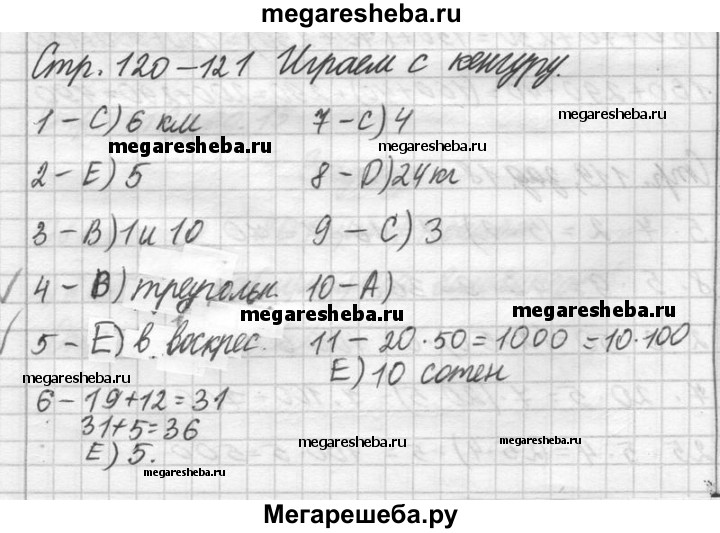 megaresheba.ru
Стр. 120-121 Играем с кенгуру.
1 - С) 6 км
7 - С) 4
megaresheba.ru
megaresheba.ru
2 - Е) 5
8 - D) 24 кг
megaresheba.ru
3 - В) 1 и 10
9 - С) 3
4 - В) треугольн.
10 - А)
megaresheba.ru
megaresheba.ru
5 - Е) в воскрес.
11 - 20 · 50 = 1000 = 10 · 100
megaresheba.ru
Е) 10 сотен
6 - 19 + 12 = 31
31 + 5 = 36
Е) 5.
megaresheba.ru
megaresheba.ru
megaresheba.ru
Мегарешеба.ру